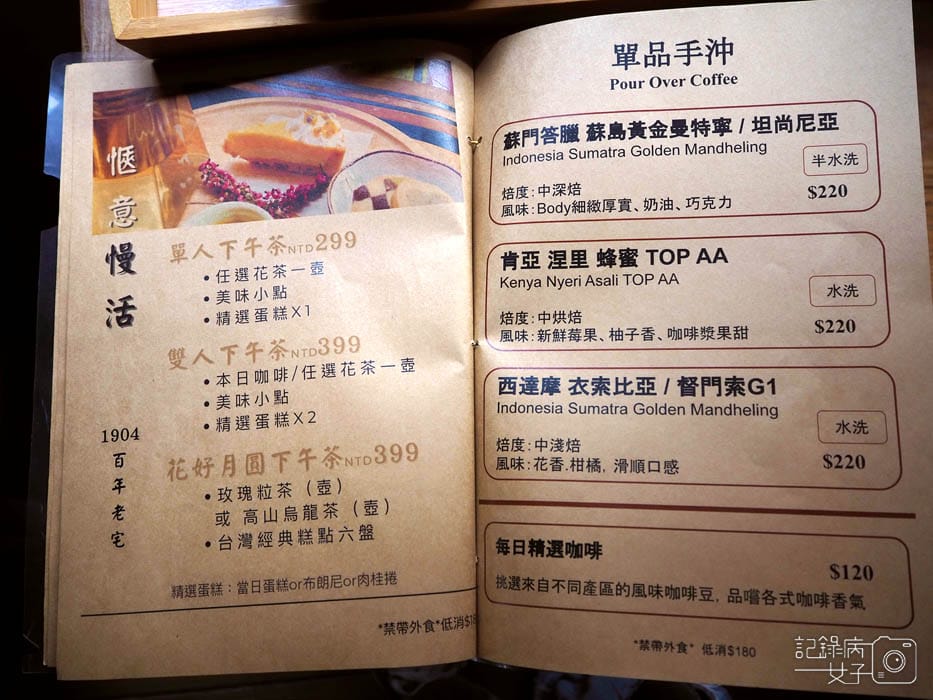 愜意慢活
1904
百年老宅
單人下午茶NTD299
•任選花茶一壺
•美味小點
•精選蛋糕X1
雙人下午茶NTD399
•本日咖啡/任選花茶一壺
•美味小點
•精選蛋糕X2
花好月圓下午茶NTD399
•玫瑰粒茶（壺）
或 高山烏龍茶（壺）
•台灣經典糕點六盤
精選蛋糕：當日蛋糕or布朗尼or肉桂捲
*禁帶外食*低消$18
單品手沖
Pour Over Coffee
蘇門答臘 蘇島黃金曼特寧 / 坦尚尼亞
Indonesia Sumatra Golden Mandheling
半水洗
焙度：中深焙
$220
風味：Body細緻厚實、奶油、巧克力
肯亞 涅里 蜂蜜 TOP AA
Kenya Nyeri Asali TOP AA
水洗
焙度：中烘焙
$220
風味：新鮮莓果、柚子香、咖啡漿果甜
西達摩 衣索比亞 / 督門索G1
Indonesia Sumatra Golden Mandheling
水洗
焙度：中淺焙
$220
風味：花香.柑橘, 滑順口感
每日精選咖啡
$120
挑選來自不同產區的風味咖啡豆，品嚐各式咖啡香氣
*禁帶外食* 低消$180
記錄病女子